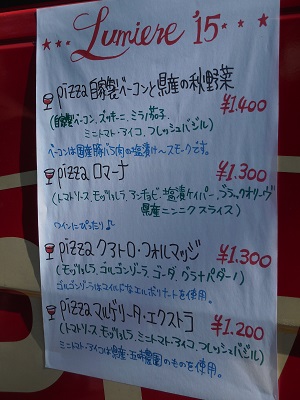 Lumiere '15
pizza 自家製ベーコンと県産の秋野菜
¥1.400
(自家製ベーコン、ズッキーニ、ミラノ茄子、
ミニトマト・アイコ、フレッシュバジル)
ベーコンは国産豚バラ肉の塩漬け〜スモークです。
pizza ロマーナ
¥1.300
(トマトソース、モッツァレラ、アンチョビ、塩漬ケイパー、ブラックオリーヴ
県産ニンニクスライス)
ワインにぴったり♪
pizza クアトロ・フォルマッジ
¥1.300
(モッツァレラ、ゴルゴンゾーラ、ゴーダ、グラナパダーノ)
ゴルゴンゾーラはマイルドなエルボリナートを使用。
pizza マルゲリータ・エクストラ
¥1.200
(トマトソース、モッツァレラ、ミニトマト・アイコ、フレッシュバジル)
ミニトマト・アイコは県産・五味農園のものを使用。